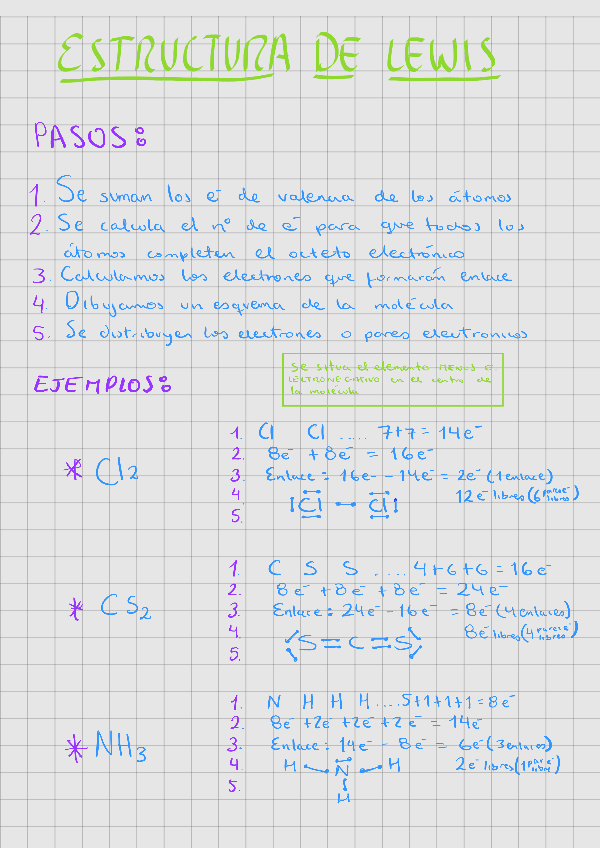 ESTRUCTURA DE LEWIS
PASOS:
1. Se suman los e⁻ de valencia de los átomos
2. Se calcula el nº de e⁻ para que todos los
átomos completen el octeto electrónico
3. Calculamos los electrones que formarán enlace
4. Dibujamos un esquema de la molécula
5. Se distribuyen los electrones o pares electronicos
Se situa el elemento menos e
lectronegativo en el centro de
la molécula
EJEMPLOS:
* Cl2
1. Cl Cl ..... 7+7 = 14e⁻
2. 8e⁻ + 8e⁻ = 16e⁻
3. Enlace: 16e⁻ - 14e⁻ = 2e⁻ (1 enlace)
4. 12e⁻ libres (6 pares e⁻ libres)
5. Cl — Cl
* CS2
1. C S S ..... 4+6+6 = 16e⁻
2. 8e⁻ + 8e⁻ + 8e⁻ = 24e⁻
3. Enlace: 24e⁻ - 16e⁻ = 8e⁻ (4 enlaces)
4. 8e⁻ libres (4 pares e⁻ libres)
5. S = C = S
* NH3
1. N H H H .... 5+1+1+1 = 8e⁻
2. 8e⁻ + 2e⁻ + 2e⁻ + 2e⁻ = 14e⁻
3. Enlace: 14e⁻ - 8e⁻ = 6e⁻ (3 enlaces)
4. H — N — H 2e⁻ libres (1 par e⁻ libre)
5.
H